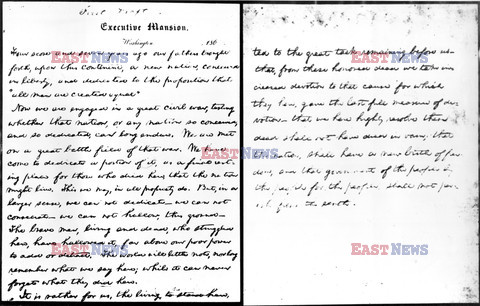 First Draft.
Executive Mansion,
Washington, 186
Four score and seven years ago our fathers brought
forth, upon this continent, a new nation, conceived
in liberty, and dedicated to the proposition that
"all men are created equal"
Now we are engaged in a great civil war, testing
whether that nation, or any nation so conceived,
and so dedicated, can long endure. We are met
on a great battle field of that war. We have
come to dedicate a portion of it, as a final rest-
ing place for those who died here, that the nation
might live. This we may, in all propriety do. But, in a
larger sense, we can not dedicate — we can not
consecrate — we can not hallow, this ground —
The brave men, living and dead, who struggled
here, have hallowed it, far above our poor power
to add or detract. The world will little note, nor long
remember what we say here; while it can never
forget what they did here.
It is rather for us, the living, to stand here,
ted to the great task remaining before us —
that, from these honored dead we take in-
creased devotion to that cause for which
they here, gave the last full measure of de-
votion — that we here highly resolve these
dead shall not have died in vain; that
the nation, shall have a new birth of free-
dom, and that government of the people by
the people for the people, shall not per-
ish from the earth.
EASTNEWS
EASTNEWS
EASTNEWS
EASTNEWS
EASTNEWS